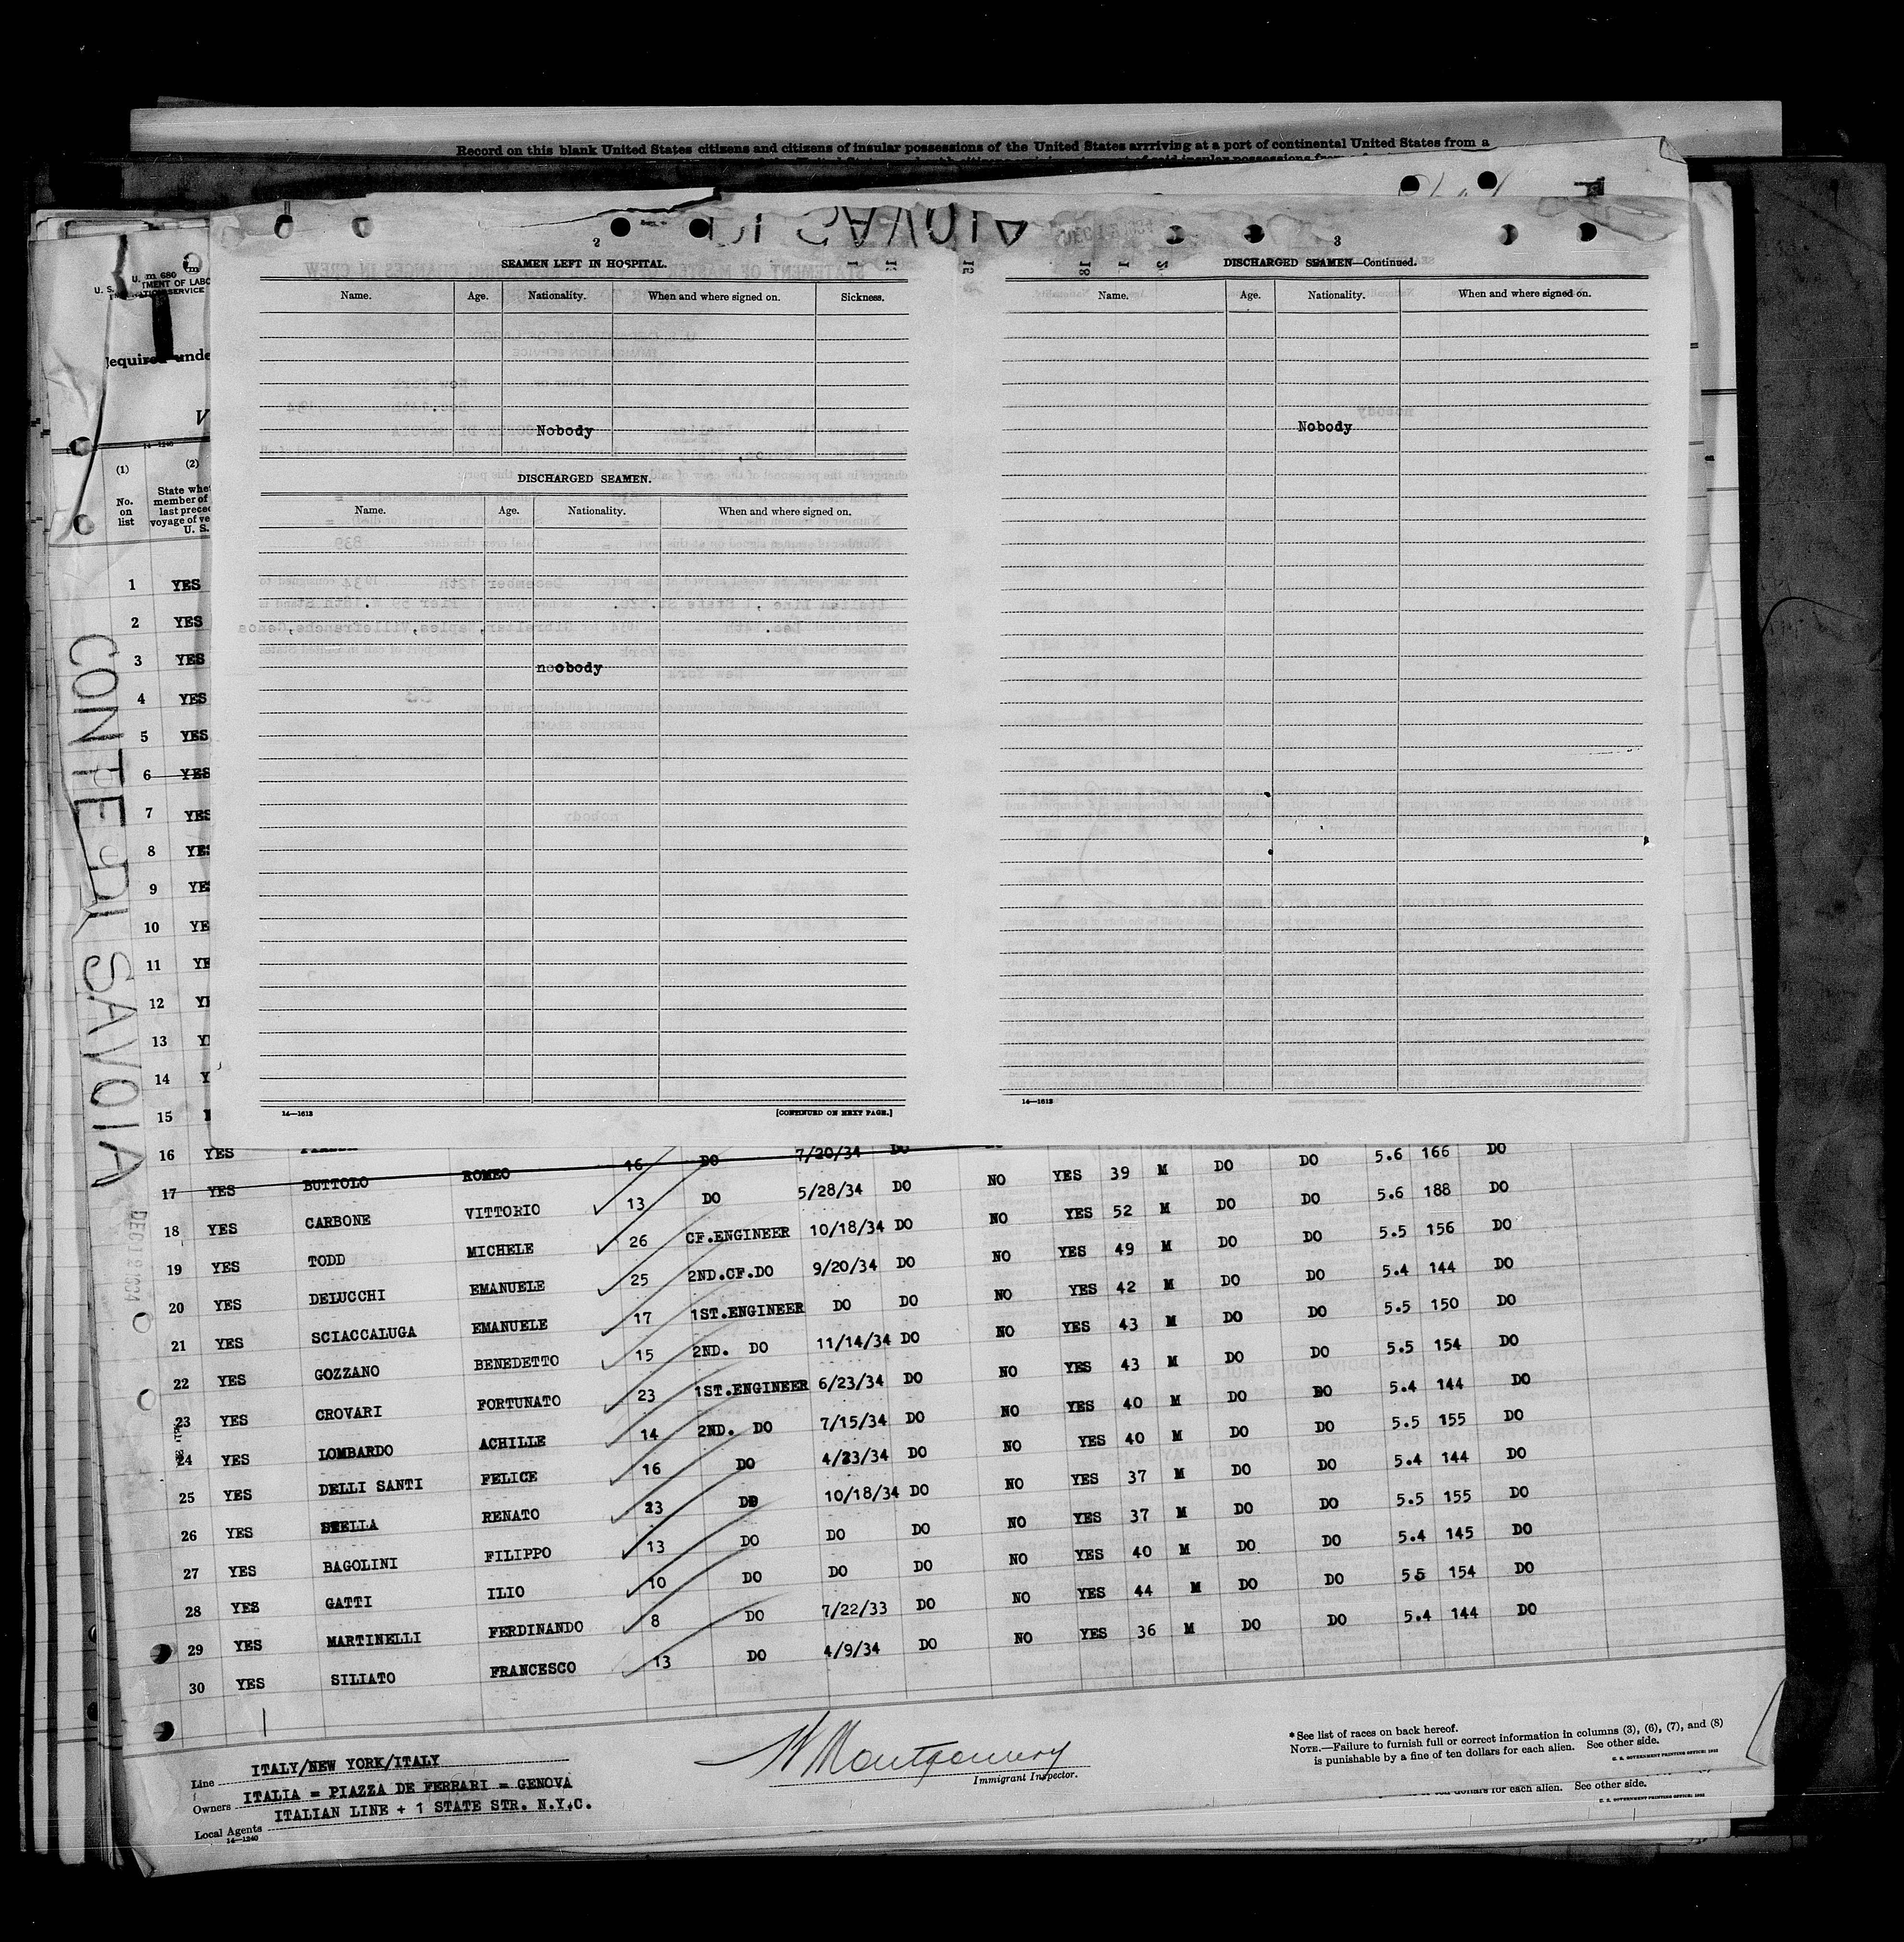 Record on this blank United States citizens and citizens of insular possessions of the United States arrriving at a port of continental United States from a
DI SAVOIA
2
SEAMEN LEFT IN HOSPITAL.
Name. Age. Nationality. When and where signed on. Sickness.
Nobody
DISCHARGED SEAMEN.
Name. Age. Nationality. When and where signed on.
noobody
14—1613 [CONTINUED ON NEXT PAGE.]
3
DISCHARGED SEAMEN—Continued.
Name. Age. Nationality. When and where signed on.
Nobody
14—1613
m 680
U. S.
TMENT OF LABO
SERVICE
equired unde
V
14—1240
(1) (2)
No. on list
State whe
member of
last preced
voyage of ve
U. S.
CONTE DI SAVOIA
DEC 12 1934
1 YES
2 YES
3 YES
4 YES
5 YES
6 YES
7 YES
8 YES
9 YE
10 YE
11 YE
12 Y
13 Y
14 Y
15
16 YES 16 DO 7/20/34 DO
17 YES BUTTOLO ROMEO 13 DO 5/28/34 DO NO YES 39 M DO DO 5.6 166 DO
18 YES CARBONE VITTORIO 26 CF.ENGINEER 10/18/34 DO NO YES 52 M DO DO 5.6 188 DO
19 YES TODD MICHELE 25 2ND.CF.DO 9/20/34 DO NO YES 49 M DO DO 5.5 156 DO
20 YES DELUCCHI EMANUELE 17 1ST.ENGINEER DO DO NO YES 42 M DO DO 5.4 144 DO
21 YES SCIACCALUGA EMANUELE 15 2ND. DO 11/14/34 DO NO YES 43 M DO DO 5.5 150 DO
22 YES GOZZANO BENEDETTO 23 1ST.ENGINEER 6/23/34 DO NO YES 43 M DO DO 5.5 154 DO
23 YES CROVARI FORTUNATO 14 2ND. DO 7/15/34 DO NO YES 40 M DO DO 5.4 144 DO
24 YES LOMBARDO ACHILLE 16 DO 4/23/34 DO NO YES 40 M DO DO 5.5 155 DO
25 YES DELLI SANTI FELICE 23 DO 10/18/34 DO NO YES 37 M DO DO 5.4 144 DO
26 YES STELLA RENATO 13 DO DO DO NO YES 37 M DO DO 5.5 155 DO
27 YES BAGOLINI FILIPPO 10 DO DO DO NO YES 40 M DO DO 5.4 145 DO
28 YES GATTI ILIO 8 DO 7/22/33 DO NO YES 44 M DO DO 55 154 DO
29 YES MARTINELLI FERDINANDO 13 DO 4/9/34 DO NO YES 36 M DO DO 5.4 144 DO
30 YES SILIATO FRANCESCO
Line ITALY/NEW YORK/ITALY
Owners ITALIA = PIAZZA DE FERRARI = GENOVA
Local Agents ITALIAN LINE + 1 STATE STR. N.Y.C.
14—1240
Montgomery
Immigrant Inspector.
* See list of races on back hereof.
NOTE.—Failure to furnish full or correct information in columns (3), (6), (7), and (8)
is punishable by a fine of ten dollars for each alien. See other side.
U. S. GOVERNMENT PRINTING OFFICE: 1932
ten dollars for each alien. See other side.
U. S. GOVERNMENT PRINTING OFFICE: 1932